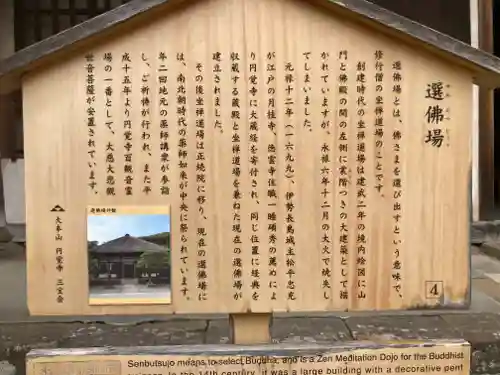 選佛場
選佛場とは、佛さまを選び出すという意味で、
修行僧の坐禅道場のことです。
創建時代の坐禅道場は建武二年の境内絵図に山
門と佛殿の間の左側に裳階つきの大建築として描
かれていますが、永禄六年十二月の大火で焼失し
てしまいました。
元禄十二年(一六九九)、伊勢長島城主松平忠充
が江戸の月桂寺、徳雲寺住職一睡碩秀の薦めによ
り円覚寺に大蔵経を寄付され、同じ位置に経典を
収蔵する蔵殿と坐禅道場を兼ねた現在の選佛場が
建立されました。
その後坐禅道場は正続院に移り、現在の選佛場に
は、南北朝時代の薬師如来が中央に祭られています。
年二回地元の薬師講衆が参詣
し、ご祈祷が行われ、また平
成十五年より円覚寺百観音霊
場の一番として、大慈大悲観
世音菩薩が安置されています。
大本山 円覚寺 三宝会
4
Senbutsujo means to select Buddha, and is a Zen Meditation Dojo for the Buddhist
In the 14th century, it was a large building with a decorative pent